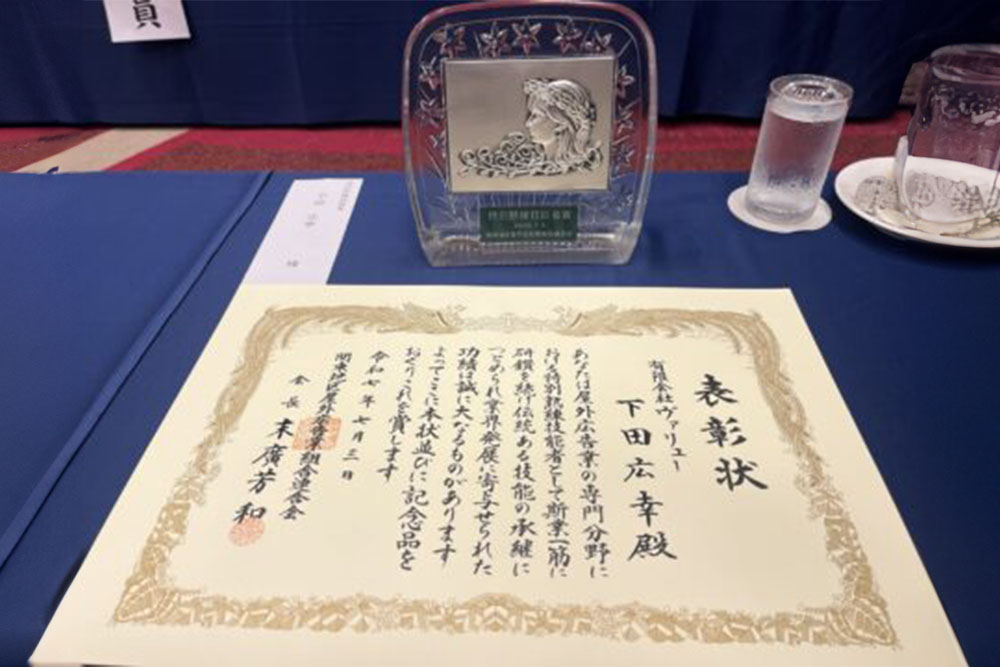 員
表彰状
有限会社ヴァリュー
下田広幸殿
あなたは屋外広告業の専門分野に
おける特別熟練技能者として斯業一筋に
研鑽を続け伝統ある技能の承継に
つとめられ業界発展に寄与せられた
功績は誠に大なるものがあります
よってここに本状並びに記念品を
おくりこれを賞します
令和七年七月三日
関東地区屋外広告業組合連合会
会長 末廣芳和